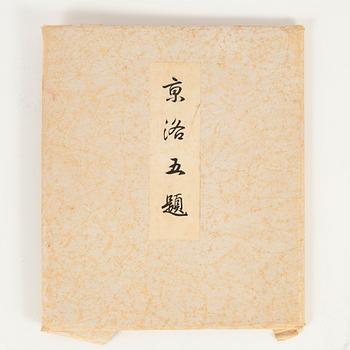 京洛五題